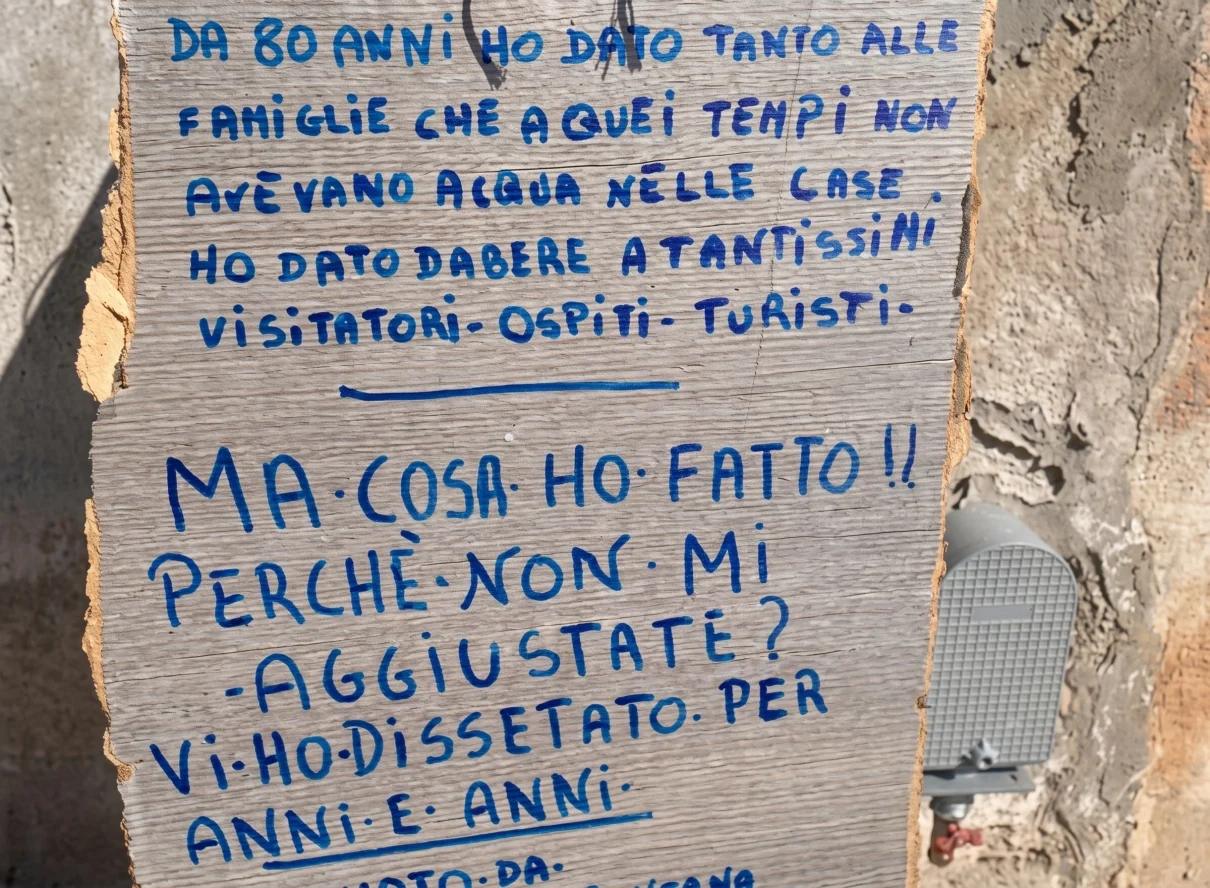 DA 80 ANNi HO DATO TANTO ALLE
FAMiGLiE CHE A QUEi TEMPi NON
AVEVANO ACQUA NELLE CASE.
HO DATO DABERE A TANTiSSiMi
ViSiTATORi- OSPiTi- TURiSTi-
MA·COSA·HO·FATTO!!
PERCHÈ·NON·Mi
-AGGiUSTATE?
Vi·HO·DiSSETATO·PER
ANNi·E·ANNi·
DA·